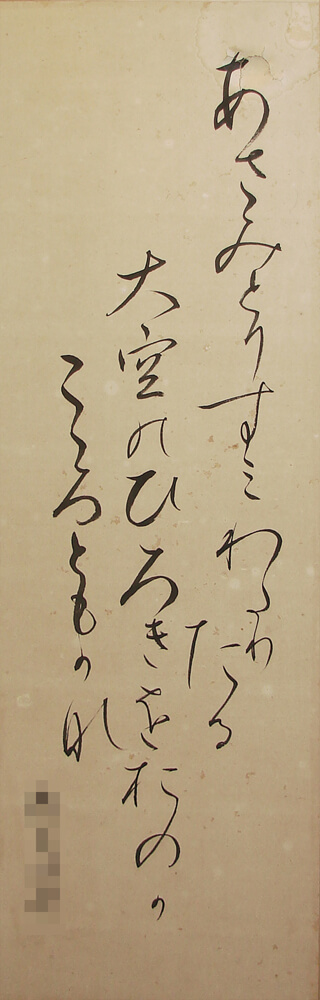 あさみとりすミわたりたる
大空のひろきをおのか
こゝろともかな